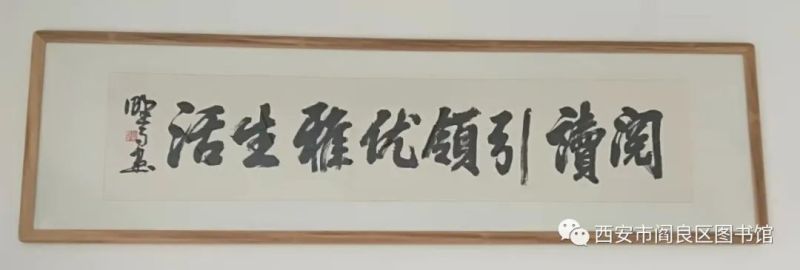 阅讀引領优雅生活
西安市阎良区图书馆